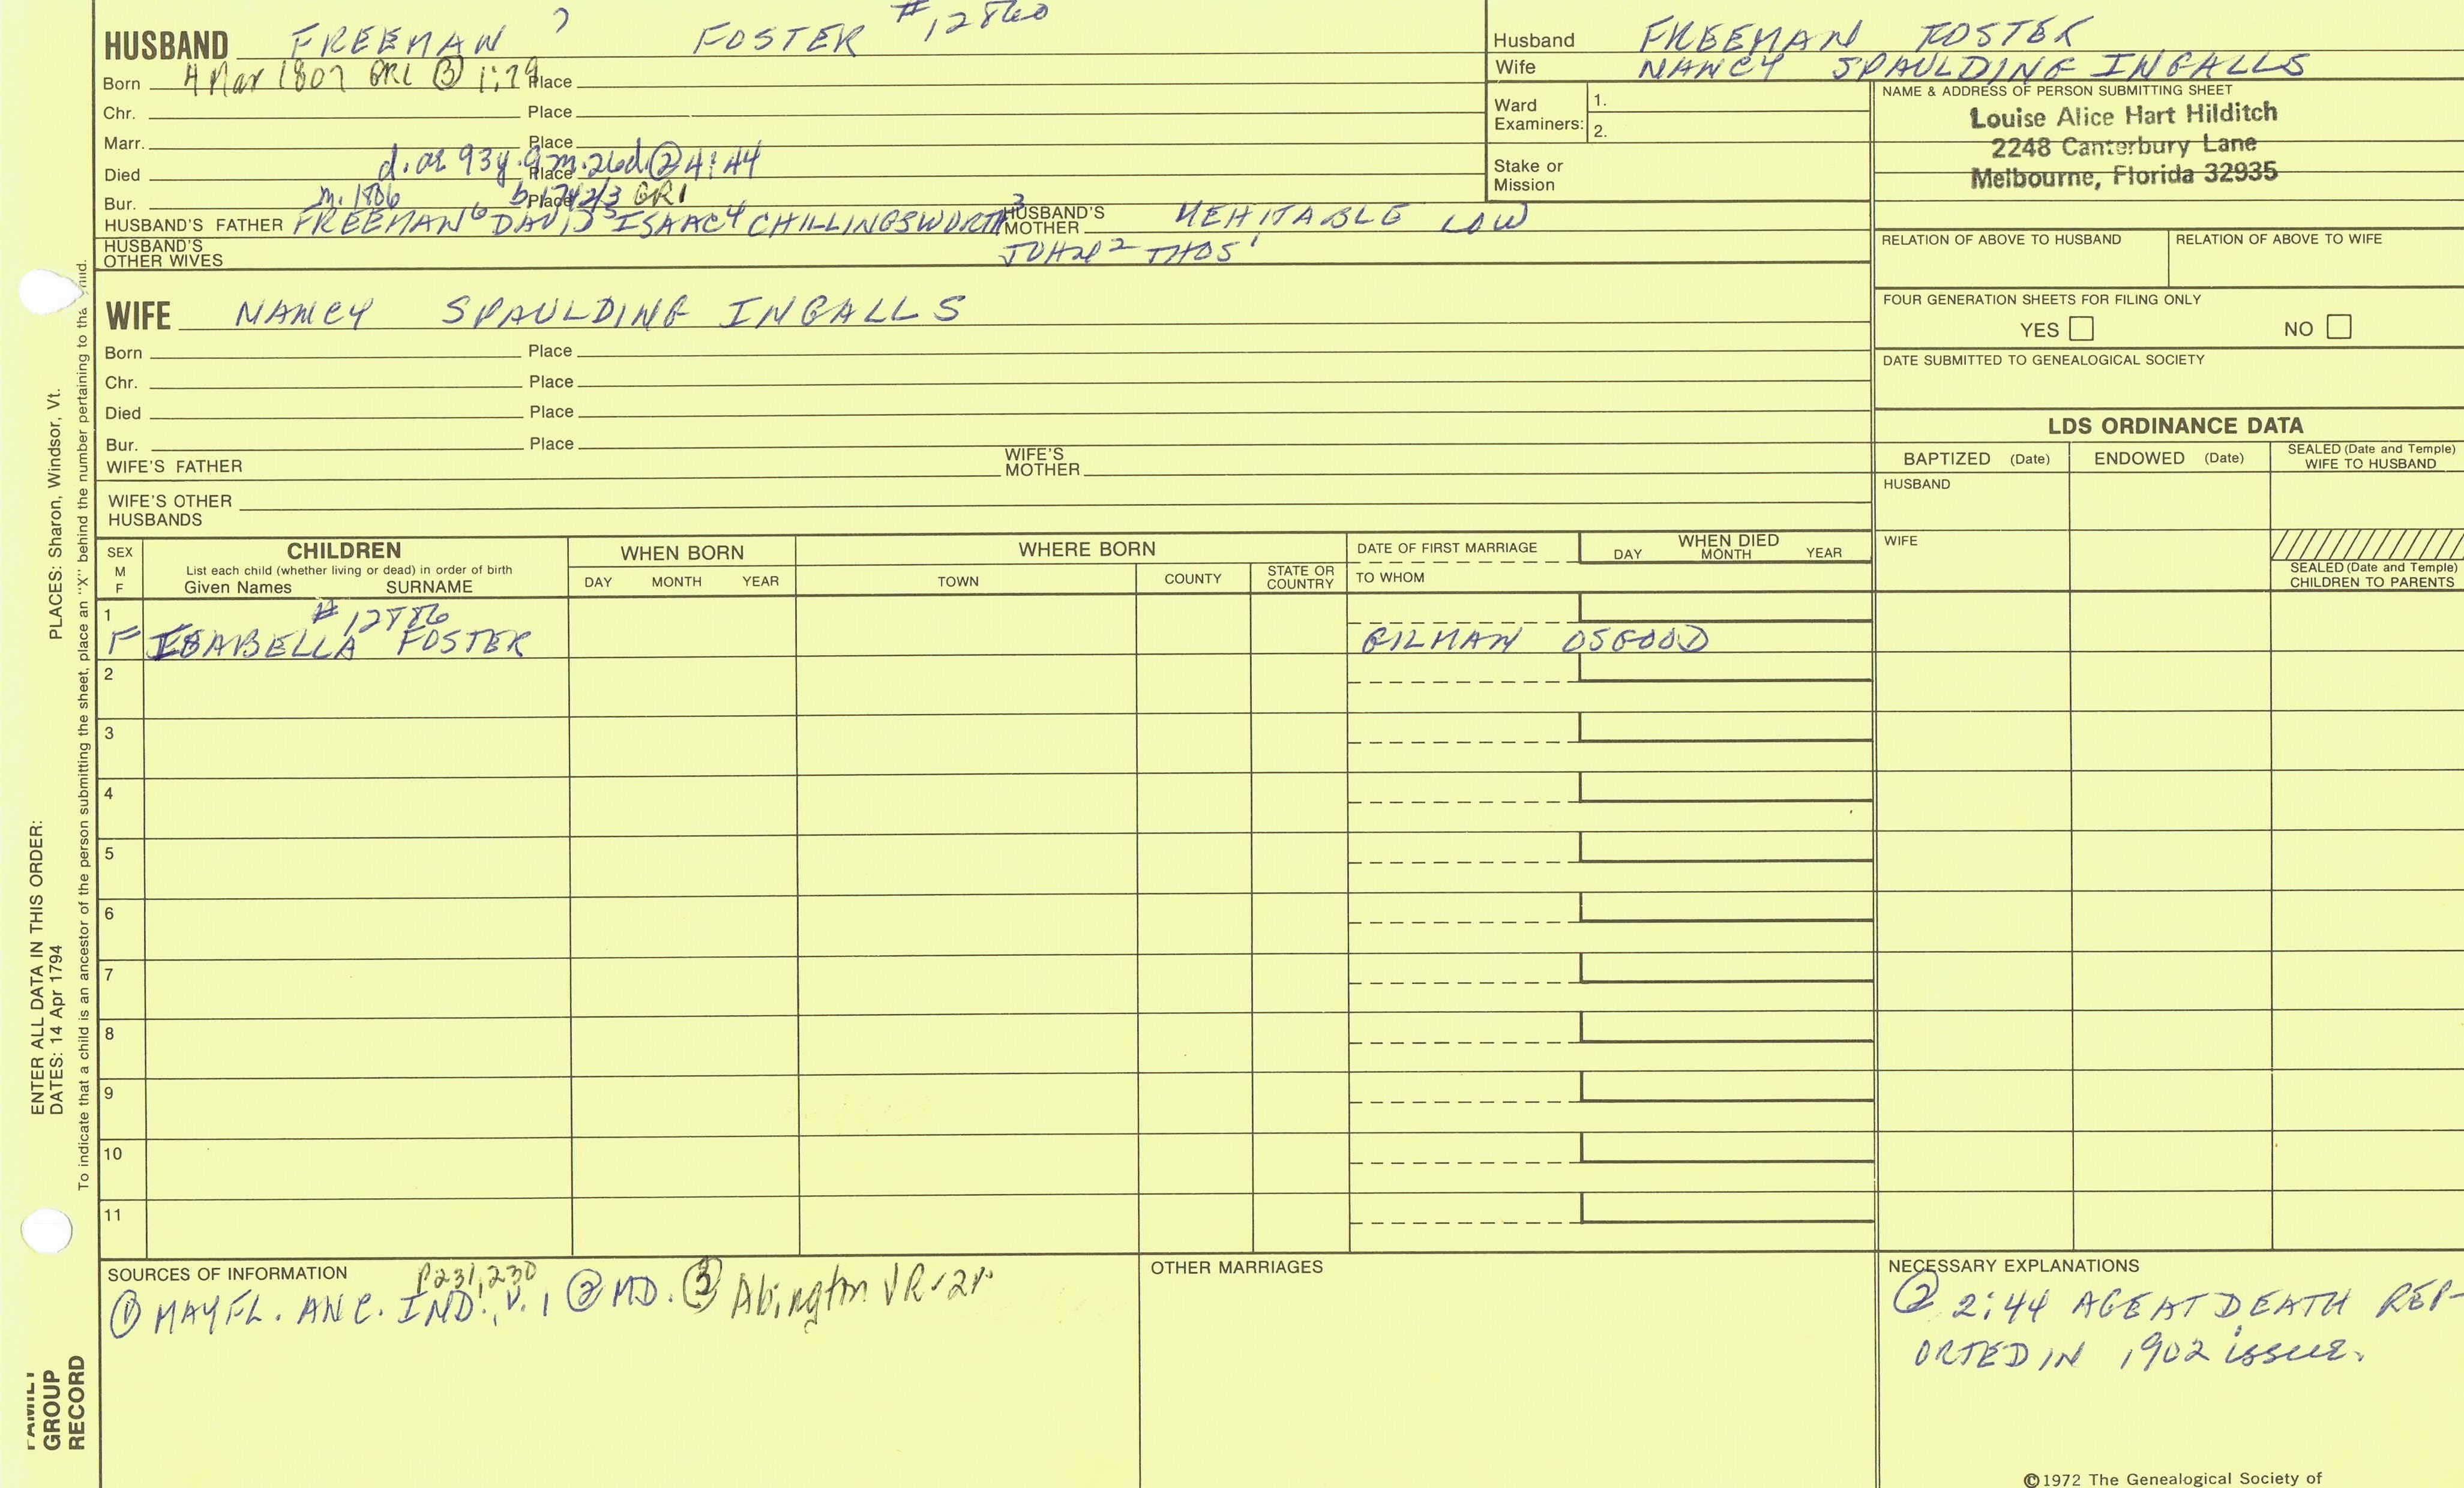 HUSBAND FREEMAN 7 FOSTER #12860
Born 4 Mar 1807 GR1 ③ 1:79 Place
Chr. Place
Marr. Place
Died d. ae 93y. 9m. 26d ② 4:44 Place
Bur. m. 1806 b. 1782/3 GR1 Place
HUSBAND'S FATHER FREEMAN 6 DAVID 5 ISAAC 4 CHILLINGSWORTH 3 HUSBAND'S MOTHER MEHITABLE LOW
HUSBAND'S OTHER WIVES JOHN 2 THOS 1
Husband FREEMAN FOSTER
Wife NANCY SPAULDING INGALLS
Ward Examiners: 1.
2.
Stake or Mission
NAME & ADDRESS OF PERSON SUBMITTING SHEET
Louise Alice Hart Hilditch
2248 Canterbury Lane
Melbourne, Florida 32935
RELATION OF ABOVE TO HUSBAND RELATION OF ABOVE TO WIFE
FOUR GENERATION SHEETS FOR FILING ONLY
YES NO
DATE SUBMITTED TO GENEALOGICAL SOCIETY
WIFE NANCY SPAULDING INGALLS
Born Place
Chr. Place
Died Place
Bur. Place
WIFE'S FATHER WIFE'S MOTHER
WIFE'S OTHER HUSBANDS
LDS ORDINANCE DATA
BAPTIZED (Date) ENDOWED (Date) SEALED (Date and Temple) WIFE TO HUSBAND
HUSBAND
WIFE
SEALED (Date and Temple) CHILDREN TO PARENTS
SEX M F
CHILDREN
List each child (whether living or dead) in order of birth
Given Names SURNAME
WHEN BORN
DAY MONTH YEAR
WHERE BORN
TOWN COUNTY STATE OR COUNTRY
DATE OF FIRST MARRIAGE
TO WHOM
WHEN DIED
DAY MONTH YEAR
1 #12886
F ISABELLA FOSTER GILMAN OSGOOD
2
3
4
5
6
7
8
9
10
11
SOURCES OF INFORMATION P231,230
① MAYFL. ANC. IND., V. 1 ② MD. ③ Abington VR
OTHER MARRIAGES
NECESSARY EXPLANATIONS
② 2:44 AGE AT DEATH REP-
ORTED IN 1902 issue.
©1972 The Genealogical Society of
PLACES: Sharon, Windsor, Vt.
ENTER ALL DATA IN THIS ORDER:
DATES: 14 Apr 1794
To indicate that a child is an ancestor of the person submitting the sheet, place an "X" behind the number pertaining to the child.
FAMILY
GROUP
RECORD